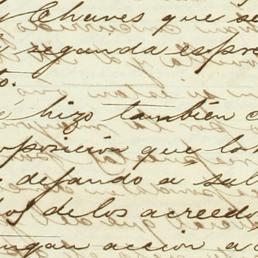 y Chaves que se
segunda espre
to.
é hizo también c
oposicion que los
dejando a sal
dos de los acreedo
tengan accion a